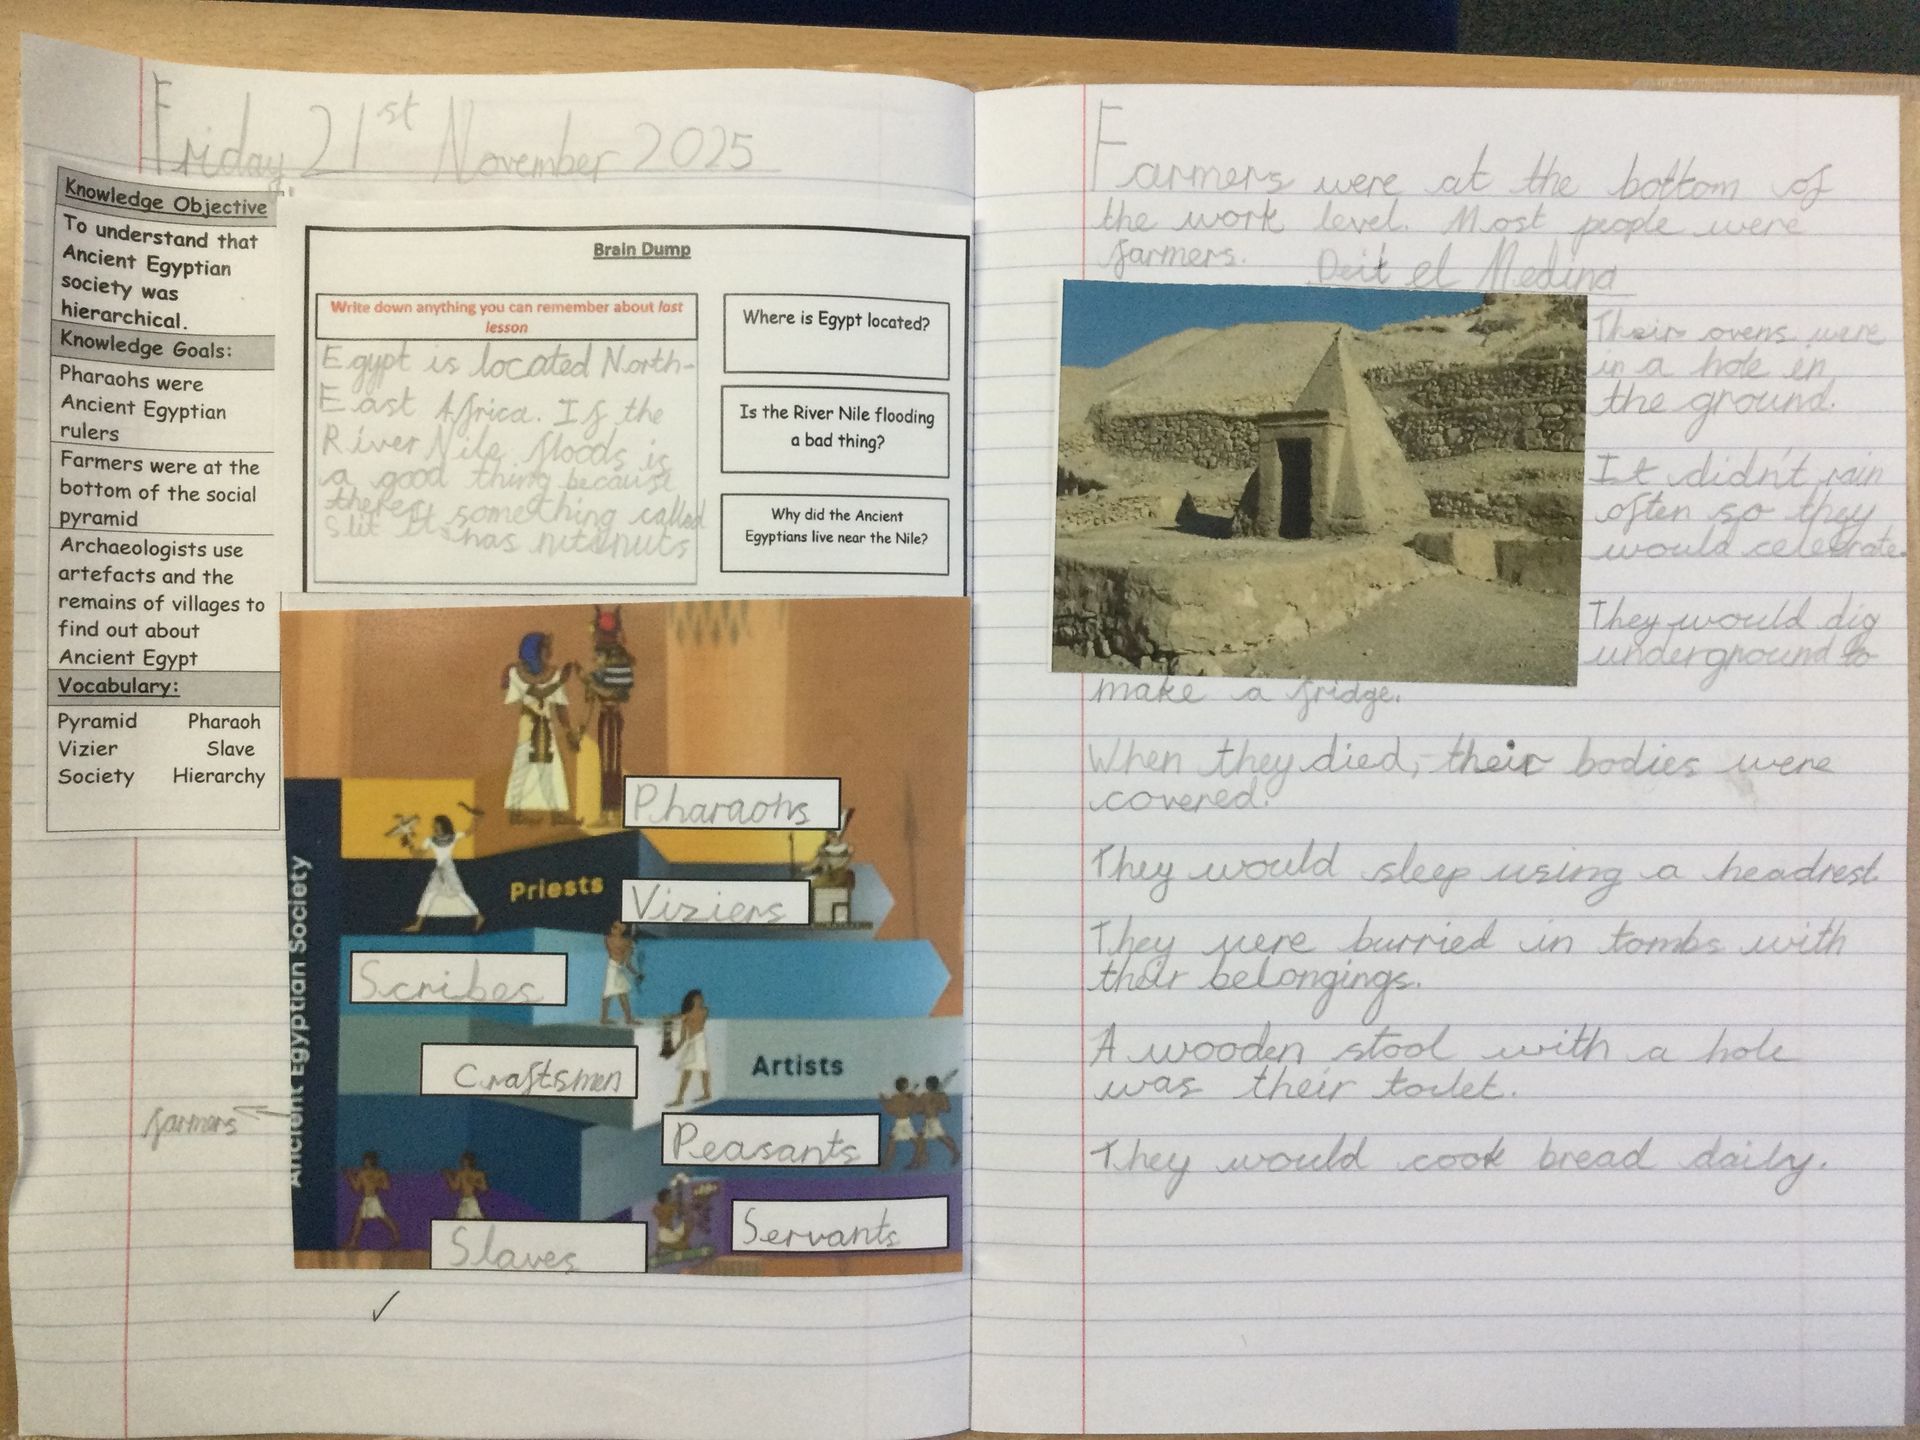 Friday 21st November 2025
Knowledge Objective
To understand that
Ancient Egyptian
society was
hierarchical.
Knowledge Goals:
Pharaohs were
Ancient Egyptian
rulers
Farmers were at the
bottom of the social
pyramid
Archaeologists use
artefacts and the
remains of villages to
find out about
Ancient Egypt
Vocabulary:
Pyramid Pharaoh
Vizier Slave
Society Hierarchy
Brain Dump
Write down anything you can remember about last
lesson
Egypt is located North-
East Africa. If the
River Nile floods is
a good thing because
theres something called
Slit It has
Where is Egypt located?
Is the River Nile flooding
a bad thing?
Why did the Ancient
Egyptians live near the Nile?
Ancient Egyptian Society
Pharaohs
Priests
Viziers
Scribes
Craftsmen
Artists
farmers
Peasants
Slaves
Servants
Farmers were at the bottom of
the work level. Most people were
farmers.
el Medina
Their ovens were
in a hole in
the ground.
It didn't rain
often so they
would celebrate.
They would dig
underground to
make a fridge.
When they died, their bodies were
covered.
They would sleep using a headrest.
They were burried in tombs with
their belongings.
A wooden stool with a hole
was their toilet.
They would cook bread daily.